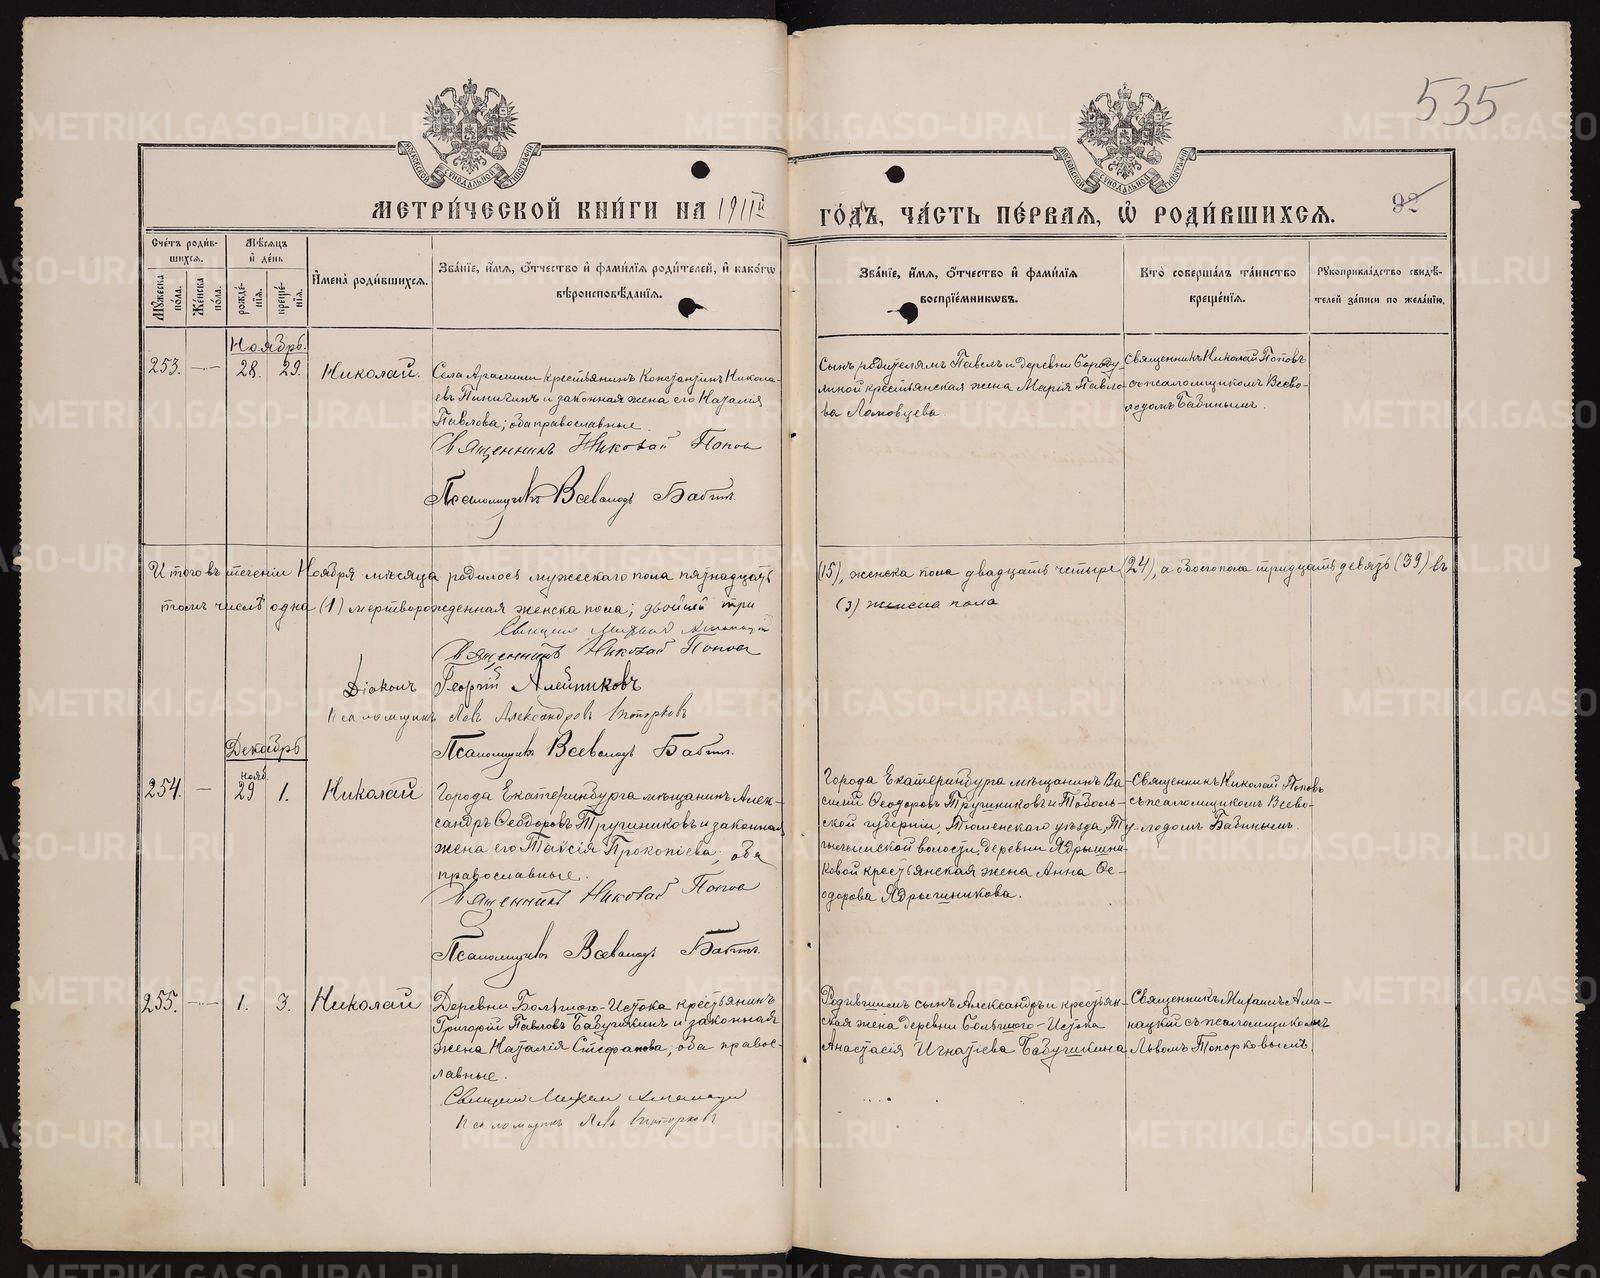 535
92
МОСКОВСКОЙ СѴНОДАЛЬНОЙ ТИПОГРАФІИ
МОСКОВСКОЙ СѴНОДАЛЬНОЙ ТИПОГРАФІИ
МЕТРИ́ЧЕСКОЙ КНИ́ГИ НА 1911й
ГО́ДЪ, ЧА́СТЬ ПЕ́РВАѦ, Ѡ҆ РОДИ́ВШИХСѦ.
Сче́тъ роди́в-
шихсѧ.
Мꙋжеска по́ла.
Же́нска по́ла.
Мѣ́сѧцъ и҆ де́нь
рожде́-
нїѧ.
креще́-
нїѧ.
И҆мена̀ роди́вшихсѧ.
Зва́нїе, и҆́мѧ, ѻ҆́тчество и҆ фами́лїѧ роди́телей, и҆ како́гѡ
вѣроисповѣ́данїѧ.
Зва́нїе, и҆́мѧ, ѻ҆́тчество и҆ фами́лїѧ
воспрїе́мникѡвъ.
Кто̀ соверша́лъ та́инство
креще́нїѧ.
Рꙋкоприкла́дство свидѣ́-
телей за́писи по жела́нїю.
Ноябрь.
253. — 28. 29. Николай.
Села Арамили крестьянинъ Константинъ Никола-
евъ Пинигинъ и законная жена его Наталія
Павлова; оба православные.
Священникъ Николай Попов
Псаломщикъ Всеволодъ Бабинъ.
Сынъ родителямъ Павелъ и деревни Бороду-
линой крестьянская жена Марія Павло-
ва Ломовцева.
Священникъ Николай Поповъ
съ псаломщикомъ Всево-
лодомъ Бабинымъ.
Итого въ теченіи Ноября мѣсяца родилось мужескаго пола пятнадцать
(15), женска пола двадцать четыре (24), а обоего пола тридцать девять (39) въ
томъ числѣ одна (1) мертворожденная женска пола; двойней три
(3) женска пола
Священникъ Николай Попов
Діаконъ Георгій Алейниковъ
Псаломщикъ Левъ Александровъ Топорковъ
Псаломщикъ Всеволодъ Бабинъ.
Декабрь
254. — нояб. 29 1. Николай
Города Екатеринбурга мѣщанинъ Алек-
сандръ Ѳеодоровъ Тружениковъ и законная
жена его Таисія Прокопіева, оба
православные.
Священникъ Николай Попов
Псаломщикъ Всеволодъ Бабинъ.
Города Екатеринбурга мѣщанинъ Ва-
силій Ѳеодоровъ Тружениковъ и Тоболь-
ской губерніи, Тюменскаго уѣзда, Ту-
гулымской волости, деревни Ядрышни-
ковой крестьянская жена Анна Ѳе-
одорова Ядрышникова.
Священникъ Николай Поповъ
съ псаломщикомъ Всево-
лодомъ Бабинымъ.
255. — 1. 3. Николай
Деревни Большого-Истока крестьянинъ
Григорій Павловъ Бабушкинъ и законная
жена Наталія Стефанова, оба правос-
лавные.
Псаломщикъ Левъ Топорковъ
Родившимъ сынъ Александръ и крестьян-
ская жена деревни Большого-Истока
Анастасія Игнатіева Бабушкина
Священникъ Михаилъ Ама-
нацкій съ псаломщикомъ
Львомъ Топорковымъ.
METRIKI.GASO-URAL.RU